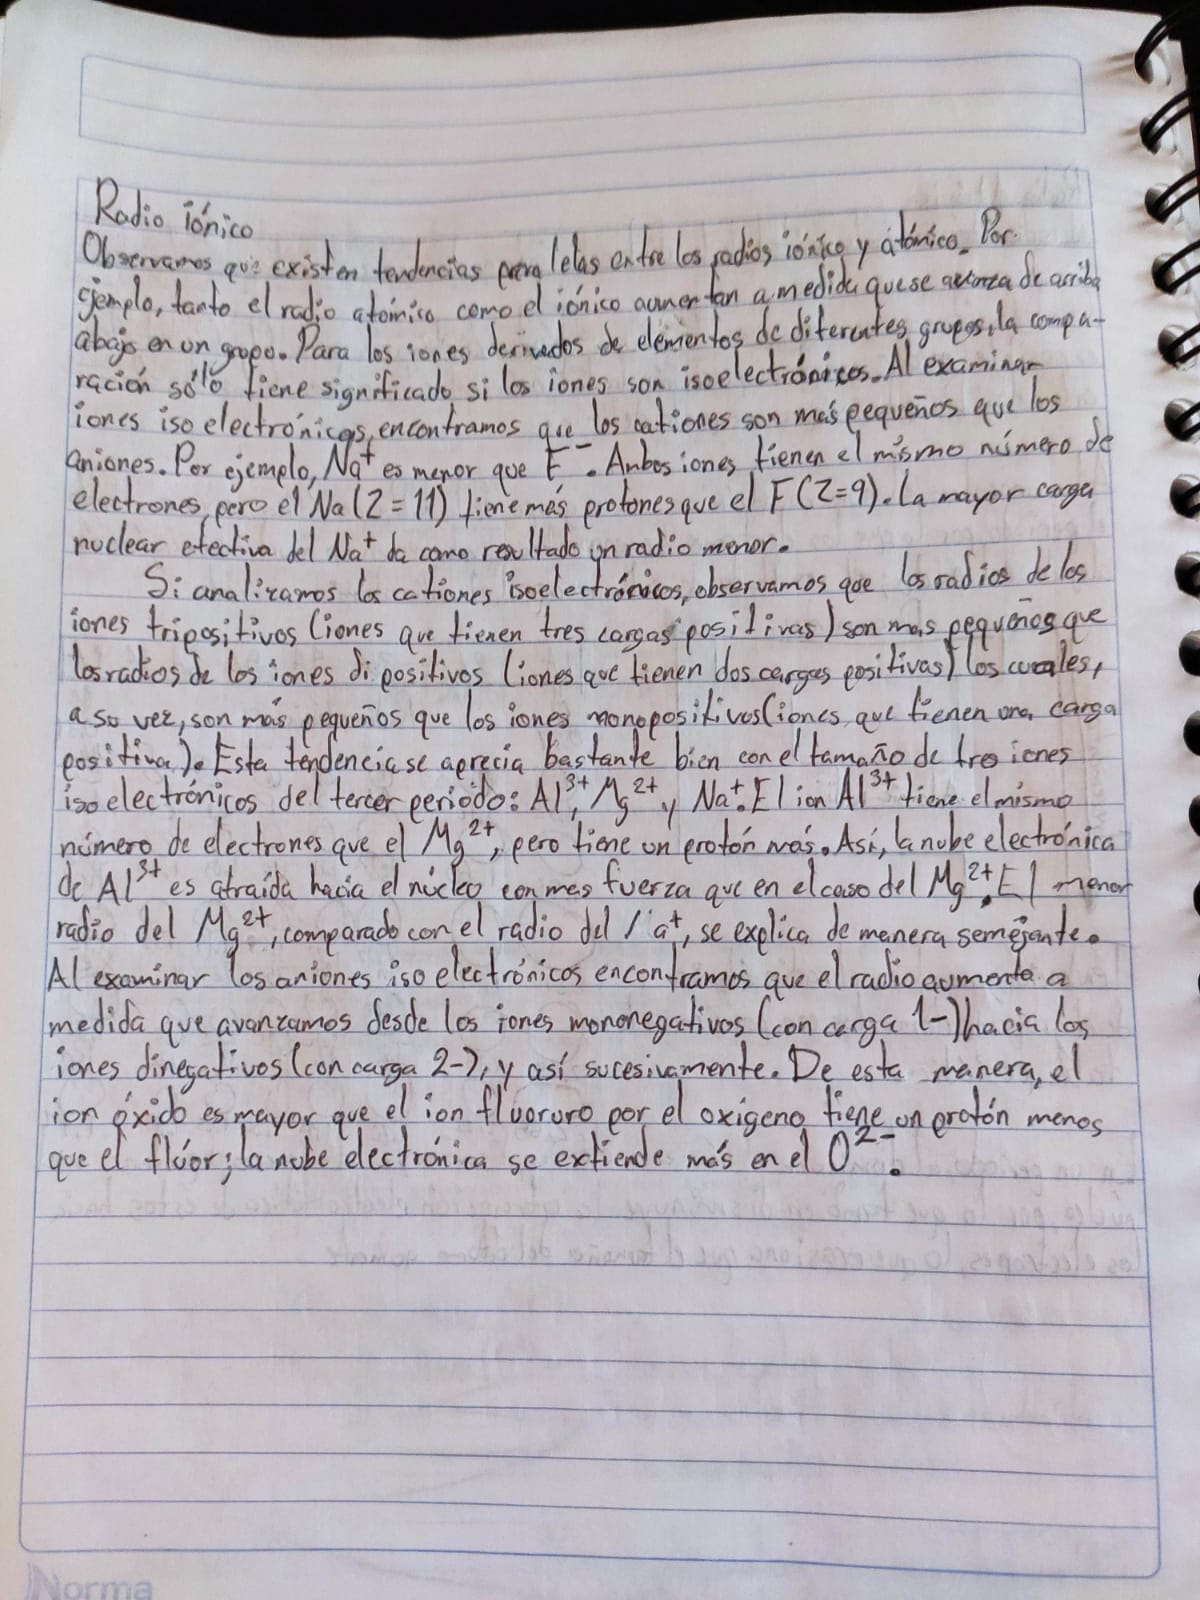 Radio iónico
Observamos que existen tendencias paralelas entre los radios iónico y atómico. Por
ejemplo, tanto el radio atómico como el iónico aumentan a medida que se avanza de arriba
abajo en un grupo. Para los iones derivados de elementos de diferentes grupos, la compa-
ración sólo tiene significado si los iones son isoelectrónicos. Al examinar
iones isoelectrónicos, encontramos que los cationes son más pequeños que los
aniones. Por ejemplo, Na⁺ es menor que F⁻. Ambos iones tienen el mismo número de
electrones, pero el Na (Z = 11) tiene más protones que el F (Z=9). La mayor carga
nuclear efectiva del Na⁺ da como resultado un radio menor.
Si analizamos los cationes isoelectrónicos, observamos que los radios de los
iones tripositivos (iones que tienen tres cargas positivas) son mas pequeños que
los radios de los iones dipositivos (iones que tienen dos cargas positivas) los cuales,
a su vez, son más pequeños que los iones monopositivos (iones que tienen una carga
positiva). Esta tendencia se aprecia bastante bien con el tamaño de tres iones
isoelectrónicos del tercer periodo: Al³⁺, Mg²⁺ y Na⁺. El ion Al³⁺ tiene el mismo
número de electrones que el Mg²⁺, pero tiene un protón más. Así, la nube electrónica
de Al³⁺ es atraída hacia el núcleo con mas fuerza que en el caso del Mg²⁺. El menor
radio del Mg²⁺, comparado con el radio del Na⁺, se explica de manera semejante.
Al examinar los aniones isoelectrónicos encontramos que el radio aumenta a
medida que avanzamos desde los iones mononegativos (con carga 1-) hacia los
iones dinegativos (con carga 2-), y así sucesivamente. De esta manera, el
ion óxido es mayor que el ion fluoruro por el oxígeno tiene un protón menos
que el flúor; la nube electrónica se extiende más en el O²⁻.
Norma